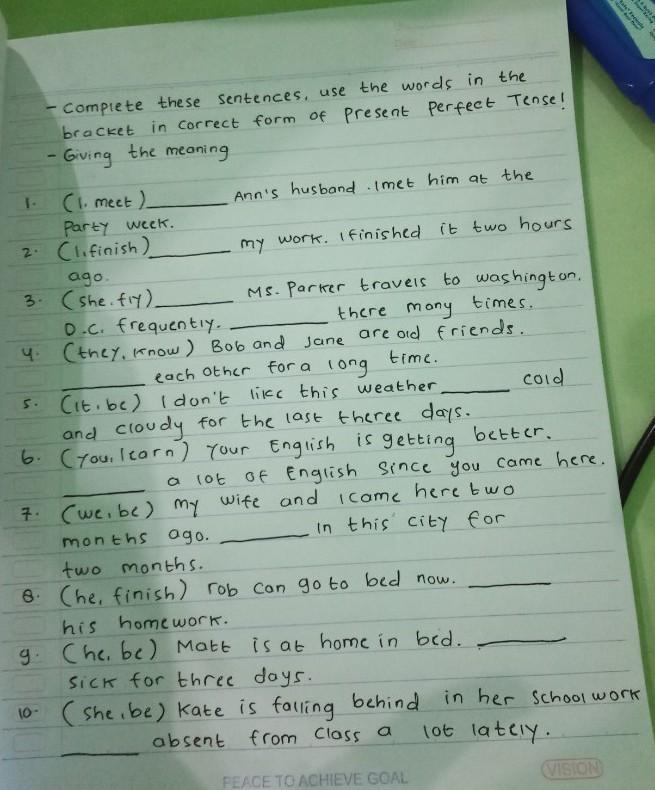 - Complete these sentences, use the words in the
bracket in correct form of Present Perfect Tense!
- Giving the meaning
1. (I. meet)________ Ann's husband. I met him at the
Party week.
2. (I, finish)________ my work. I finished it two hours
ago.
3. (she. fly)________ Ms. Parker travels to washington,
D.C. frequently. ________ there many times.
4. (they, know) Bob and Jane are old friends.
________ each other for a long time.
5. (it, be) I don't like this weather ________ cold
and cloudy for the last theree days.
6. (you, learn) Your English is getting better.
________ a lot of English since you came here.
7. (we, be) my wife and I came here two
months ago. ________ in this city for
two months.
8. (he, finish) rob can go to bed now. ________
his homework.
9. (he, be) Matt is at home in bed. ________
sick for three days.
10. (she, be) Kate is falling behind in her school work
________ absent from class a lot lately.
PEACE TO ACHIEVE GOAL
VISION